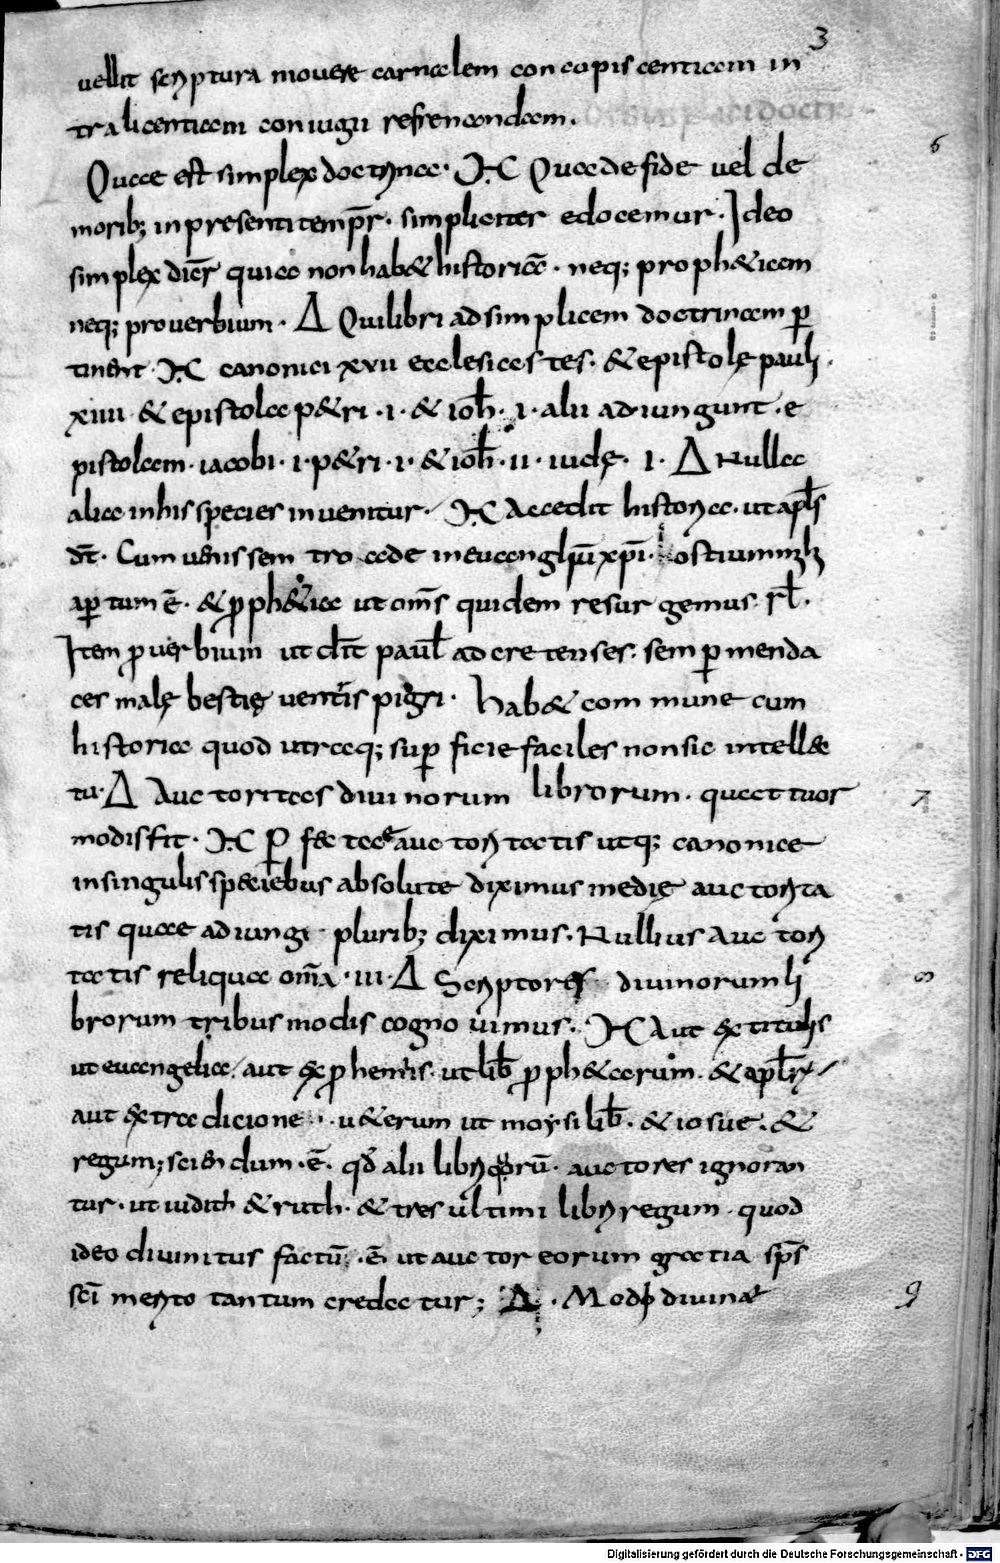 3
uellit scriptura mouere carnalem concupiscentiam in
tra licentiam coniugii refrenandam.
6
Quae est simplex doctrina. M Quae de fide uel de
morib; in presenti temp̄r. simpliciter edocemur. Ideo
simplex dicr̄ quia non hab& historiā. neq; proph&icam
neq; prouerbium. Δ Qui libri ad simplicem doctrinam p̄
tinent. M canonici xvii ecclesiastes. & epistolę pauli
xiiii & epistola p&ri .i. & ioh̄. i. alii adiungunt. e
pistolam. iacobi. i. p&ri .i. & ioh̄. ii. iudę. I. Δ Nulla
alia in his species inuenitur. M Accedit historica. ut apl̄s
dt̄. Cum uenissem troade in euangliū xp̄i. & ostium mihi
ap̄tum ē. & proph&ica ut om̄s quidem resurgemus rl̄.
Item prouerbium ut dīt paul̄ ad cretenses. semp̄ menda
ces malę bestię uentris pigri. hab& commune cum
historica quod utraq; sup̄ficie faciles non sic intelle
tu. Δ Auctoritas diuinorum librorum. quattuor
7
modis fit. M P̄fectae auctoritatis utq; canonice
in singulis speciebus absolute diximus medię auctorita
tis quae adiungi pluribus diximus. Nullius Auctori
tatis reliqua om̄a. iii. Δ Scriptores diuinorum li
8
brorum tribus modis cognouimus. M Aut ex titulis
ut euangelica. aut ex prohemiis. ut lib̄ proph&arum. & apl̄ry
aut ex tradicione. u&erum ut moysi lib̄. & iosue. &
regum; sciendum. ē. qd̄ alii librorū. auctores ignoran
tur. ut iudith & ruth. & tres ultimi libri regum. quod
ideo diuinitus factū. ē ut auctor eorum gratia sp̄s
sc̄i merito tantum credatur; Δ. Modi diuinae
9
Digitalisierung gefördert durch die Deutsche Forschungsgemeinschaft - DFG